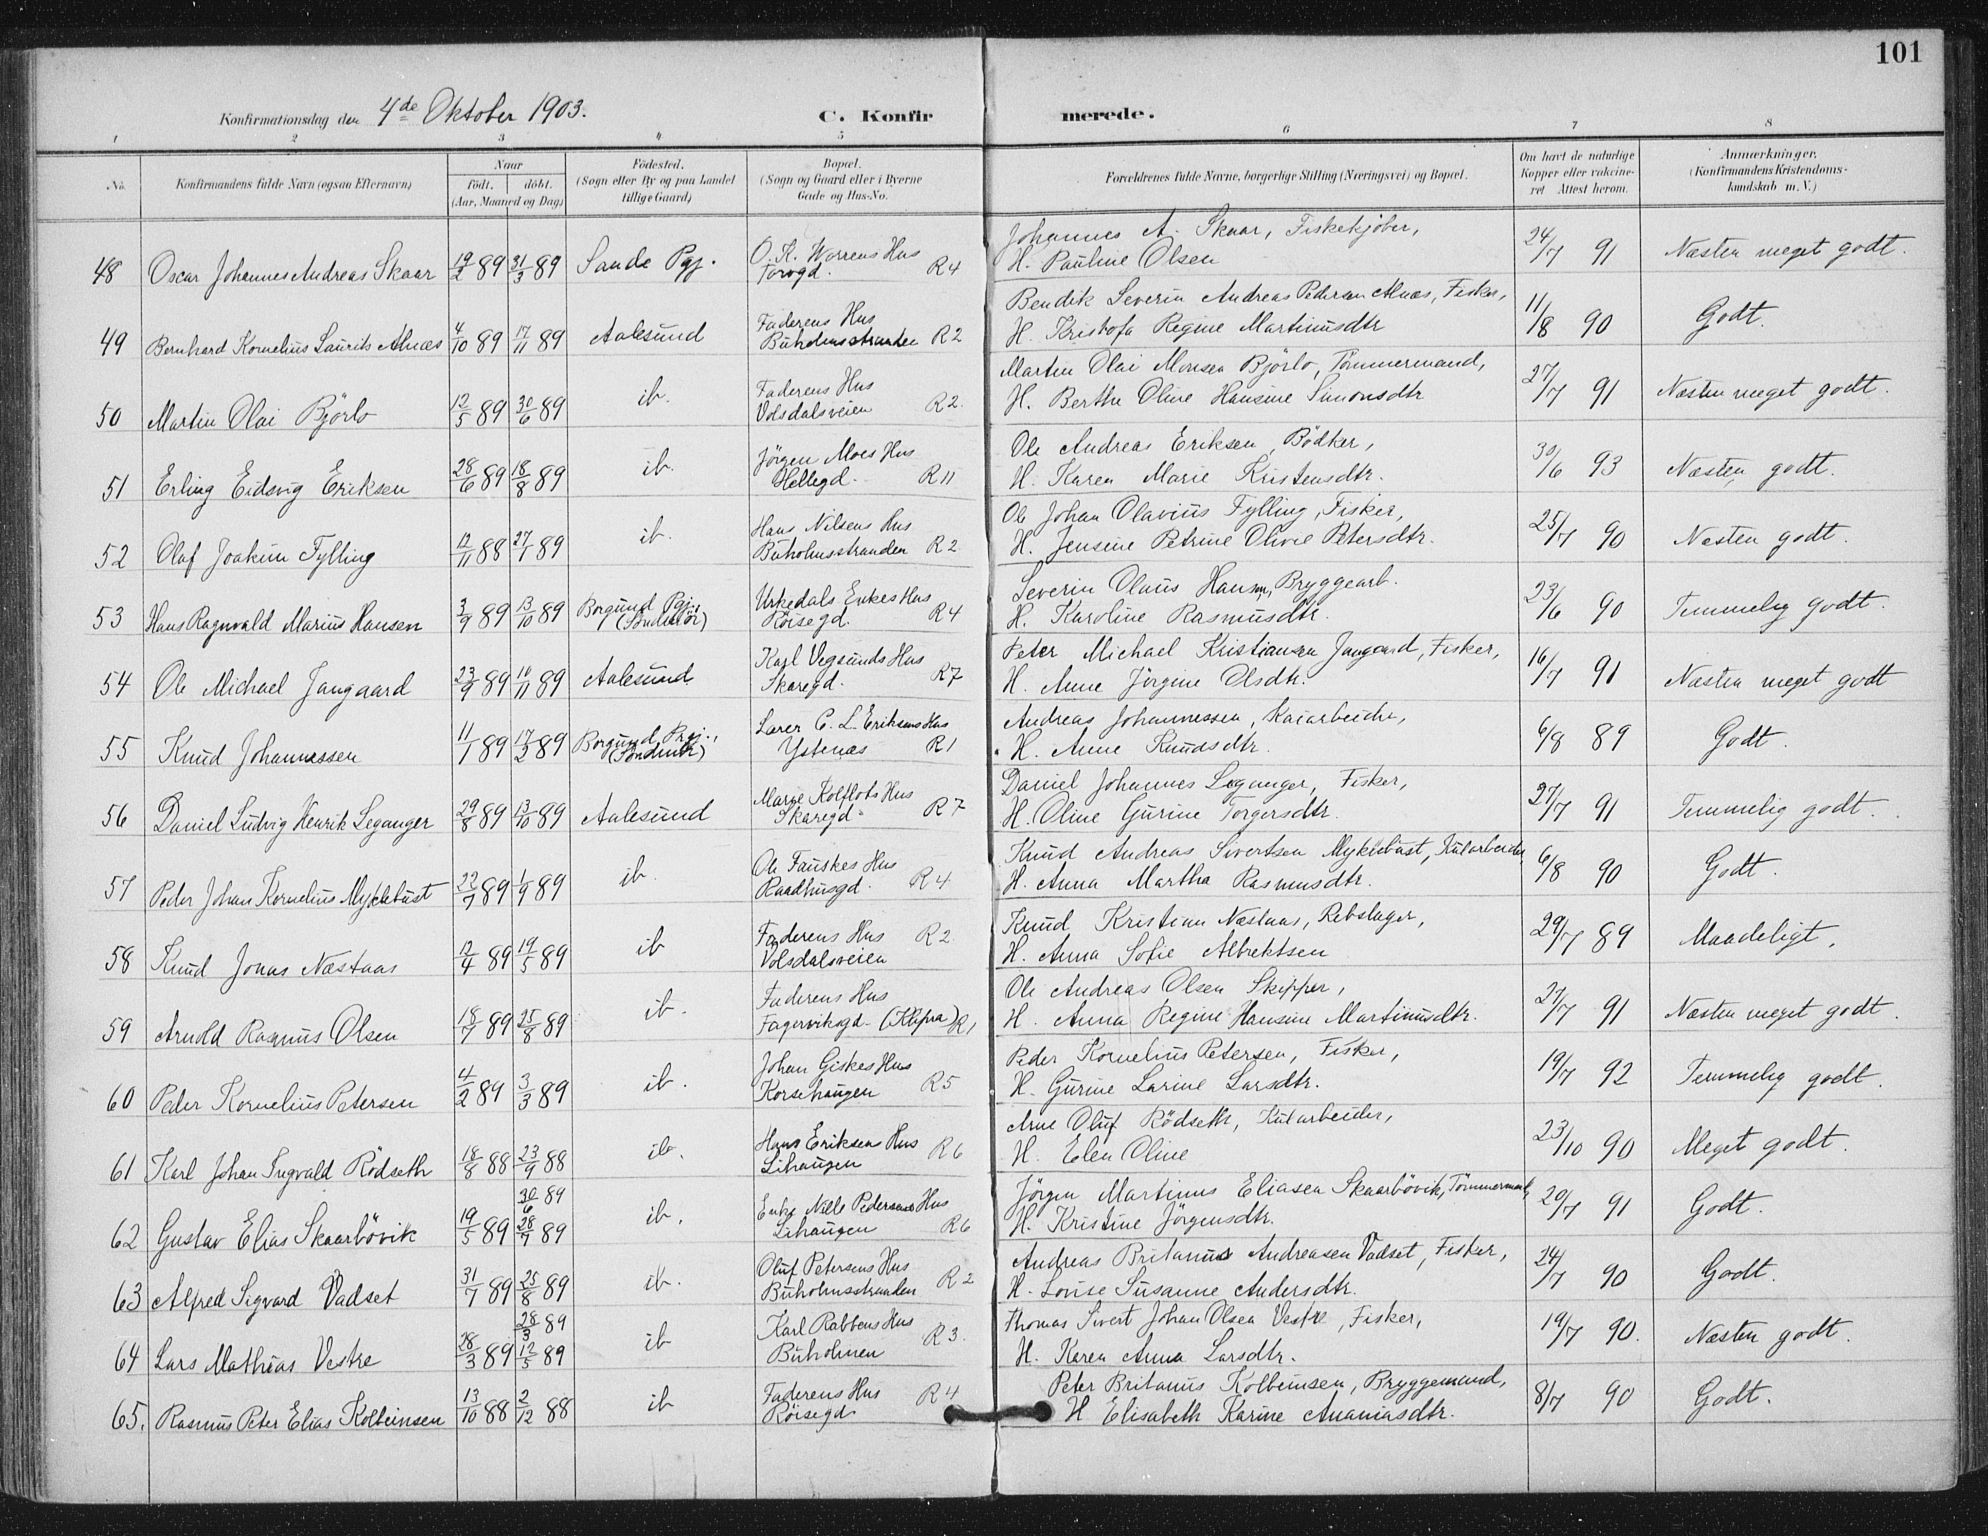 101
Konfirmationsdag den 4de Oktober 1903.
C. Konfirmerede.
1 2 3 4 5 6 7 8
No.
Konfirmandens fulde Navn (ogsaa Efternavn)
Naar
födt. döbt.
(Aar, Maaned og Dag)
Födested.
(Sogn eller By og paa Landet
tillige Gaard)
Bopæl.
(Sogn og Gaard eller i Byerne
Gade og Hus-No.
Forældrenes fulde Navne, borgerlige Stilling (Næringsvei) og Bopæl.
Om havt de naturlige
Kopper eller vakcine-
ret Attest herom.
Anmærkninger.
(Konfirmandens Kristendoms-
kundskab m. V.)
48 Oscar Johannes Andreas Skaar 19/2 89 31/3 89 Sande Pgj. O. K. Worrens Hus Torvgd. R 4 Johannes A. Skaar, Fiskekjøber,
H. Pauline Olsen 24/7 91 Næsten meget godt.
49 Bernhard Kornelius Laurits Alnæs 4/10 89 17/11 89 Aalesund Faderens Hus Buholmsstranden R 2 Bendik Severin Andreas Pedersen Alnæs, Fisker,
H. Kristofa Regine Martinusdtr 11/8 90 Godt.
50 Martin Olai Björlo 12/5 89 30/6 89 ib. Faderens Hus Volsdalsveien R 2. Martin Olai Monsen Björlo, Tömmermand,
H. Berthe Oline Hansine Simonsdtr 27/7 91 Næsten meget godt.
51 Erling Eidsvig Eriksen 28/6 89 18/8 89 ib. Jörgen Moes Hus Hellegd. R 11 Ole Andreas Eriksen, Bödker,
H. Karen Marie Kristensdtr. 30/6 93 Næsten godt.
52 Olaf Joakim Fylling 12/11 88 27/1 89 ib. Hans Nilsens Hus Buholmsstranden R 2 Ole Johan Olavius Fylling, Fisker,
H. Jensine Petrine Olivie Petersdtr. 25/7 90 Næsten godt.
53 Hans Ragnvald Marius Hansen 3/9 89 13/10 89 Borgund Pgj. Urkedals Enkes Hus Röisegd. R 4 Severin Olaus Hansen, Bryggearb.
H. Karoline Rasmusdtr. 23/6 90 Temmelig godt.
54 Ole Michael Jangaard 23/9 89 10/11 89 Aalesund Karl Vegsunds Hus Skaregd. R 7 Peter Michael Kristiansen Jangaard, Fisker,
H. Anne Jörgine Olsdtr. 16/7 91 Næsten meget godt
55 Knud Johannessen 11/1 89 17/2 89 Borgund Prgj. Lærer C. L. Eriksens Hus Ystenæs R 1 Andreas Johannessen, Kaiarbeider,
H. Anne Knudsdtr. 6/8 89 Godt.
56 Daniel Ludvig Henrik Leganger 29/8 89 13/10 89 Aalesund Marie Kolflots Hus Skaregd. R 7 Daniel Johannes Leganger, Fisker,
H. Oline Gurine Torgersdtr. 27/7 91 Temmelig godt.
57 Peder Johan Kornelius Myklebust 22/7 89 1/9 89 ib. Ole Fauskes Hus Raadhusgd. R 4 Knud Andreas Sivertsen Myklebust, Kularbeider
H. Anna Martha Rasmusdtr. 6/8 90 Godt.
58 Knud Jonas Næstaas 12/4 89 19/5 89 ib Faderens Hus Volsdalsveien R 2 Knud Kristian Næstaas, Rebslager,
H. Anna Sofie Albrektsen 29/7 89 Maadeligt.
59 Arnold Rasmus Olsen 18/7 89 25/8 89 ib. Faderens Hus Fagerviksgd. (Klipra) R 1 Ole Andreas Olsen Skipper,
H. Anna Regine Hansine Martinusdtr. 27/7 91 Næsten meget godt.
60 Peder Kornelius Petersen 4/2 89 3/3 89 ib. Johan Giskes Hus Korsehaugen R 5 Peder Kornelius Petersen, Fisker,
H. Gurine Larine Larsdtr. 19/7 92 Temmelig godt.
61 Karl Johan Ingvald Rödseth 18/8 88 23/9 88 ib. Hans Eriksens Hus Lihaugen R 6 Arne Oluf Rödseth, Kularbeider,
H. Elen Oline 23/10 90 Meget godt.
62 Gustav Elias Skaarbövik 19/5 89 30/6 89 28/7 89 ib. Enke Nille Pedersens Hus Lihaugen R 6 Jörgen Martinus Eliasen Skaarbövik, Tömmermand,
H. Kristine Jörgensdtr. 20/7 91 Godt.
63 Alfred Sigvard Vadset 31/7 89 25/8 89 ib. Oluf Petersens Hus Buholmsstranden R 2 Andreas Britanus Andreasen Vadset, Fisker,
H. Lovise Susanne Andersdtr. 24/7 90 Godt.
64 Lars Mathias Vestre 28/3 89 28/3 89 12/5 89 ib Karl Rabbens Hus Buholmen R 3. Thomas Sivert Johan Olsen Vestre, Fisker,
H. Karen Anna Larsdtr. 19/7 90. Næsten godt.
65. Rasmus Peter Elias Kolbeinsen 13/10 88 2/12 88 ib Faderens Hus Röisegd R 4 Peter Britanus Kolbeinsen, Bryggemand,
H Elisabeth Karine Ananiasdtr. 8/7 90 Godt.